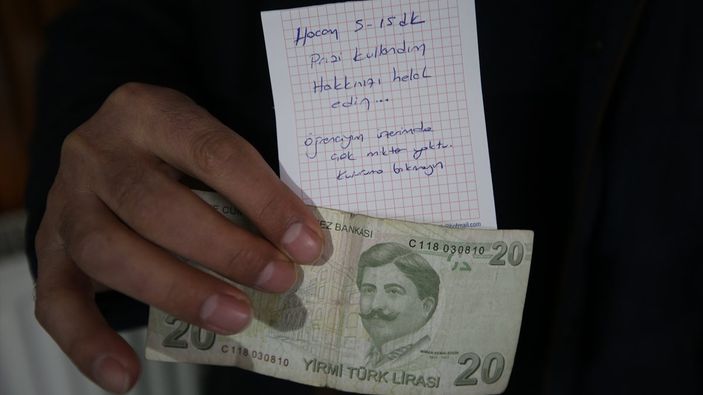 Hocam 5-15 dk
Prizi kullandım
Hakkınızı helal
edin...
öğrenciyim üzerimde
çok miktar yoktu.
Kusura bakmayın
hotmail.com
EZ BANKASI
C118 030810
20
20
C118 030810
YİRMİ TÜRK LİRASI
20